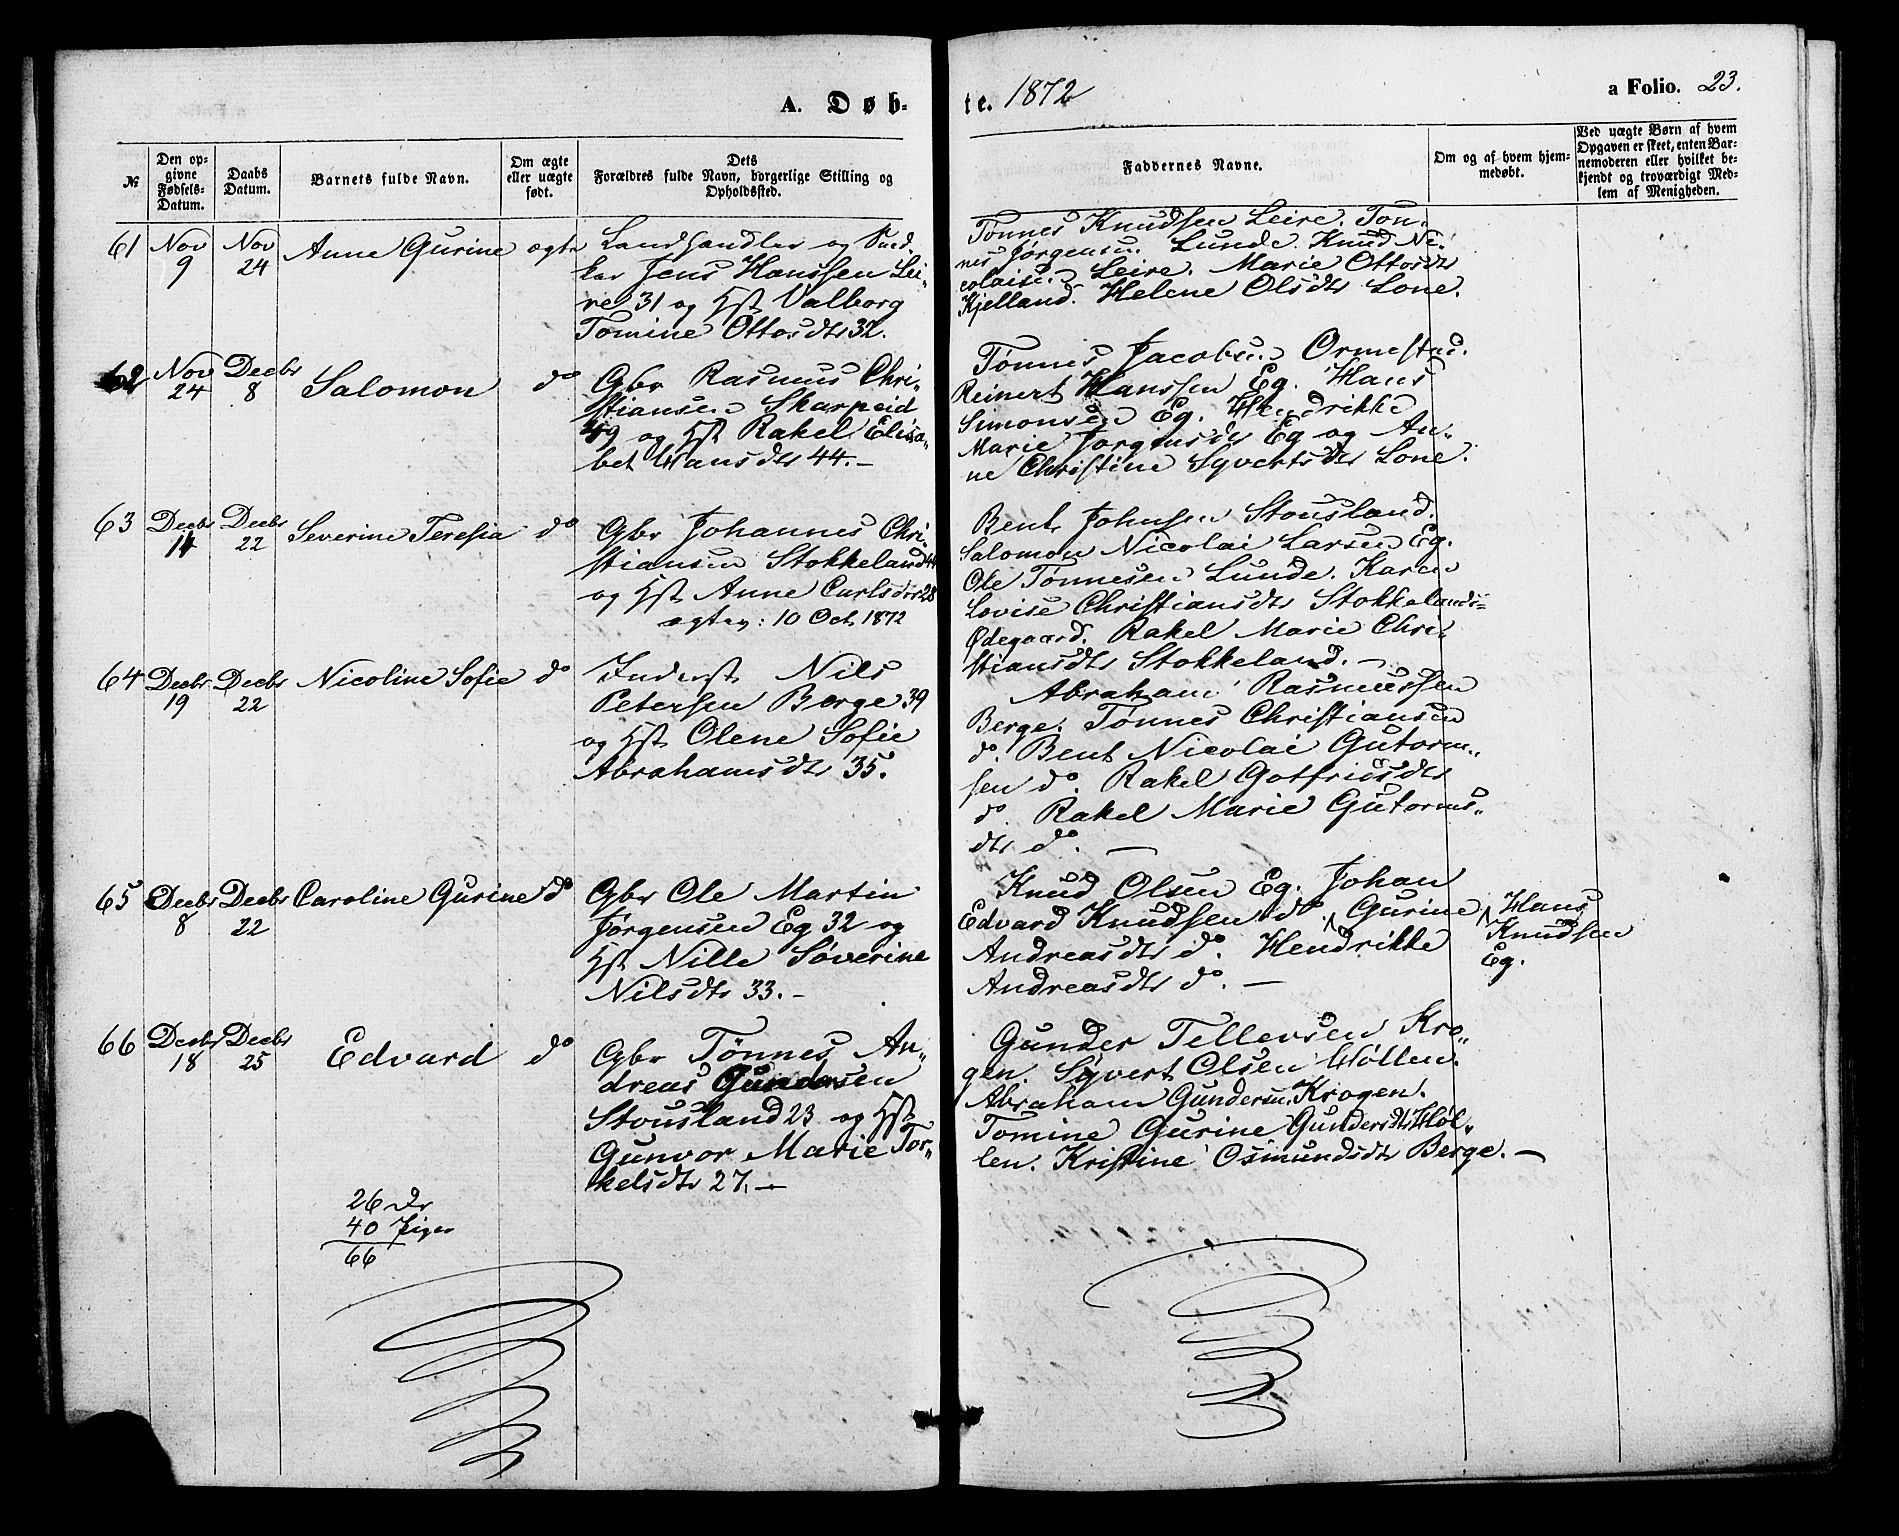 A. Døb-
№
Den op-
givne
Fødsels-
Datum.
Daabs
Datum.
Barnets fulde Navn.
Om ægte
eller uægte
født.
Dets
Forældres fulde Navn, borgerlige Stilling og
Opholdssted.
61
Nov
9
Nov
24
Anne Gurine
ægte
Landhandler og
Jens Hanssen Lei„
re 31 og Hst Valborg
Tomine Ottosdtr 32.
62
Nov
24
Decbr
8
Salomon
do
Gbr Rasmus Chri„
stiansen Skarpeid
49 og Hst Rakel Elisa„
bet Hansdtr 44.—
63
Decbr
14
Decbr
22
Severine Teresia
do
Gbr Johannes Chri„
stiansen Stokkeland 44
og Hst Anne Carlsdtr 28
ægtev: 10 Oct. 1872
64
Decbr
19
Decbr
22
Nicoline Sofie
do
Inderst Nils
Petersen Berge 39
og Hst Olene Sofie
Abrahamsdtr 35.
65
Decbr
8
Decbr
22
Caroline Gurine
do
Gbr Ole Martin
Jørgensen Eg 32 og
Hst Nille Søverine
Nilsdtr 33.—
66
Decbr
18
Decbr
25
Edvard
do
Gbr Tønnes An„
dreas Gundersen
Stousland 23 og Hst
Gunvor Marie Tor„
kelsdtr 27.—
26 Dr
40 Piger
66
te. 1872
a Folio. 23.
Faddernes Navne.
Om og af hvem hjem-
medøbt.
Ved uægte Børn af hvem
Opgaven er skeet, enten Bar-
nemoderen eller hvilket be-
kjendt og troværdigt Med-
lem af Menigheden.
Tønnes Knudsen Leire. Tøn„
nes Jørgensen Lunde. Knud Ni„
colaisen Leire. Marie Ottosdtr
Kjelland. Helene Olsdtr Lone.
Tønnes Jacobsen Ormestad.
Reinert Hanssen Eg. Hans
Simonsen Eg. Hendrikke
Marie Jørgensdtr Eg og An„
ne Christine Syvertsdtr Lone.
Bent Johnsen Stousland.
Salomon Nicolai Larsen Eg.
Ole Tønnesen Lunde. Karen
Lovise Christiansdtr Stokkelands=
Ødegaard. Rakel Marie Chri„
stiansdtr Stokkeland.—
Abraham Rasmussen
Berge. Tønnes Christiansen
do. Bent Nicolai Gutorm„
sen do. Rakel Gotfriedsdtr
do. Rakel Marie Gutorms„
dtr do.—
Knud Olsen Eg. Johan
Edvard Knudsen do. Gurine
Andreasdtr do. Hendrikke
Andreasdtr do.—
Hans
Knudsen
Eg.
Gunder Tellevsen Kro„
gen. Syvert Olsen Høllen.
Abraham Gundersen Krogen.
Tomine Gurine Gundersdtr Høl„
len. Kristine Osmundsdtr Berge.—